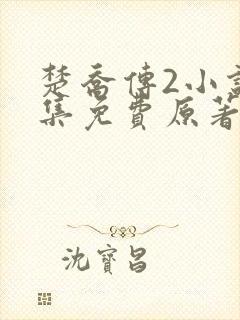 楚喬傳2小說
集免費原著
沈寶昌